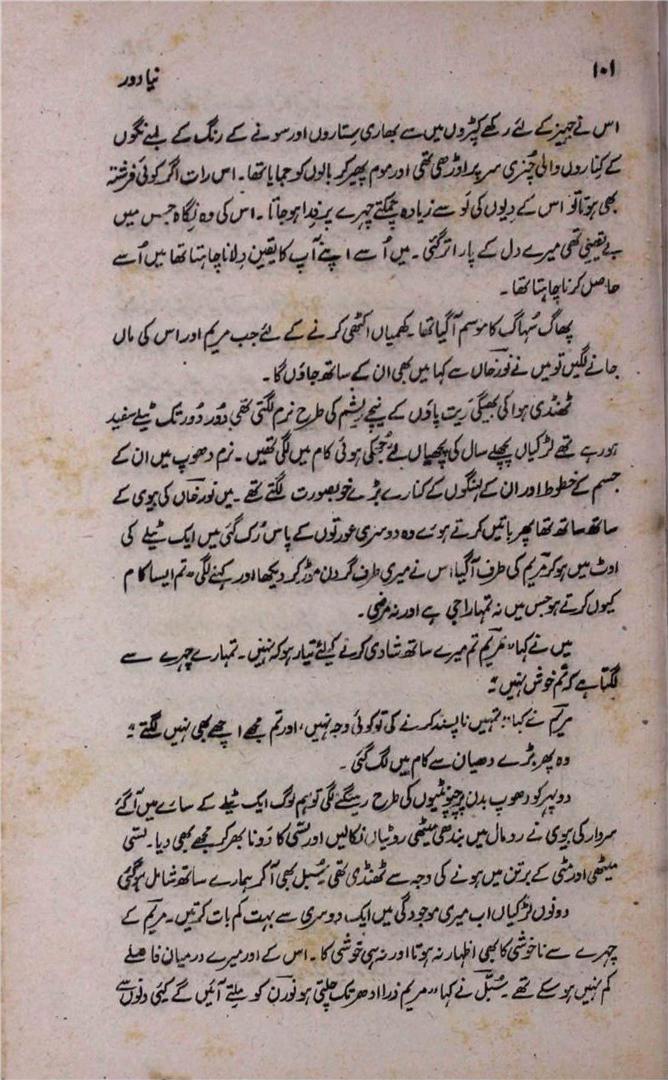 ۱۰۱
نیا دور
اس نے جہیز کے لئے رکھے کپڑوں میں سے بھاری ستاروں اور سونے کے رنگ کے لمبے نگوں
کے کناروں والی چُنری سر پر اوڑھی تھی اور موم پھیر کر بالوں کو جمایا تھا۔ اس رات اگر کوئی فرشتہ
بھی ہوتا تو اس کے دیوں کی لَو سے زیادہ چمکتے چہرے پر فدا ہو جاتا۔ اس کی وہ نگاہ جس میں
بے یقینی تھی میرے دل کے پار اتر گئی۔ میں اُسے اپنے آپ کا یقین دلانا چاہتا تھا میں اُسے
حاصل کرنا چاہتا تھا۔
پھاگ سُہاگ کا موسم آگیا تھا۔ کھمیاں اکٹھی کرنے کے لئے جب مریم اور اس کی ماں
جانے لگیں تو میں نے نور خاں سے کہا میں بھی ان کے ساتھ جاؤں گا۔
ٹھنڈی ہوا کی بھیگی ریت پاؤں کے نیچے ریشم کی طرح نرم لگتی تھی دُور دُور تک ٹیلے سفید
ہو رہے تھے لڑکیاں پچھلے سال کی پچھیاں لئے جھکی ہوئی کام میں لگی تھیں۔ نرم دھوپ میں ان کے
جسم کے خطوط اور ان کے لہنگوں کے کنارے بڑے خوبصورت لگتے تھے۔ میں نور خاں کی بیوی کے
ساتھ ساتھ تھا پھر باتیں کرتے ہوئے وہ دوسری عورتوں کے پاس رُک گئی میں ایک ٹیلے کی
اوٹ میں ہو کر مریم کی طرف آگیا، اس نے میری طرف گردن موڑ کر دیکھا اور کہنے لگی "تم ایسا کام
کیوں کرتے ہو جس میں نہ تمہارا جی ہے اور نہ مرضی۔
میں نے کہا "مریم تم میرے ساتھ شادی کرنے کیلئے تیار ہو کہ نہیں۔ تمہارے چہرے سے
لگتا ہے کہ تم خوش نہیں"
مریم نے کہا "تمہیں ناپسند کرنے کی تو کوئی وجہ نہیں، اور تم مجھے اچھے بھی نہیں لگتے"
وہ پھر بڑے دھیان سے کام میں لگ گئی۔
دوپہر کو دھوپ بدن پر چیونٹیوں کی طرح رینگنے لگی تو ہم لوگ ایک ٹیلے کے سائے میں آگئے
سردار کی بیوی نے رومال میں بندھی میٹھی روٹیاں نکالیں اور لسّی کا دَونا بھر کر مجھے بھی دیا۔ لسّی
میٹھی اور مٹی کے برتن میں ہونے کی وجہ سے ٹھنڈی تھی سُنبل بھی آ کر ہمارے ساتھ شامل ہو گئی
دونوں لڑکیاں اب میری موجودگی میں ایک دوسری سے بہت کم بات کرتیں۔ مریم کے
چہرے سے ناخوشی کا کبھی اظہار نہ ہوتا اور نہ ہی خوشی کا۔ اس کے اور میرے درمیان فاصلے
کم نہیں ہو سکے تھے۔ سُنبل نے کہا "مریم ذرا ادھر تک چلتی ہو نورن کو ملتے آئیں گے کئی دنوں سے